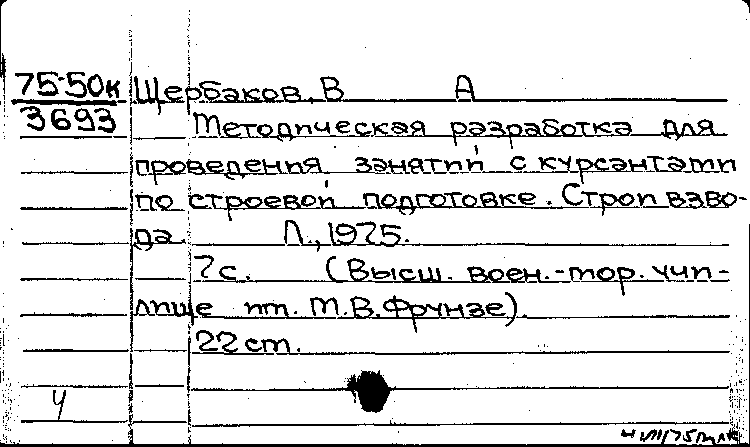 75-50к Щербаков, В А
3693 Методическая разработка для
проведения занятий с курсантами
по строевой подготовке. Строи взво-
да. Л., 1975.
7с. (Высш. воен.-мор. учи-
лище им. М.В.Фрунзе).
22cm.
Ч